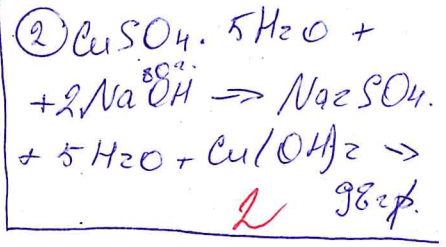 ② CuSO4 · 5H2O +
80г.
+2NaOH → Na2SO4.
+ 5H2O + Cu(OH)2 →
2 98гр.